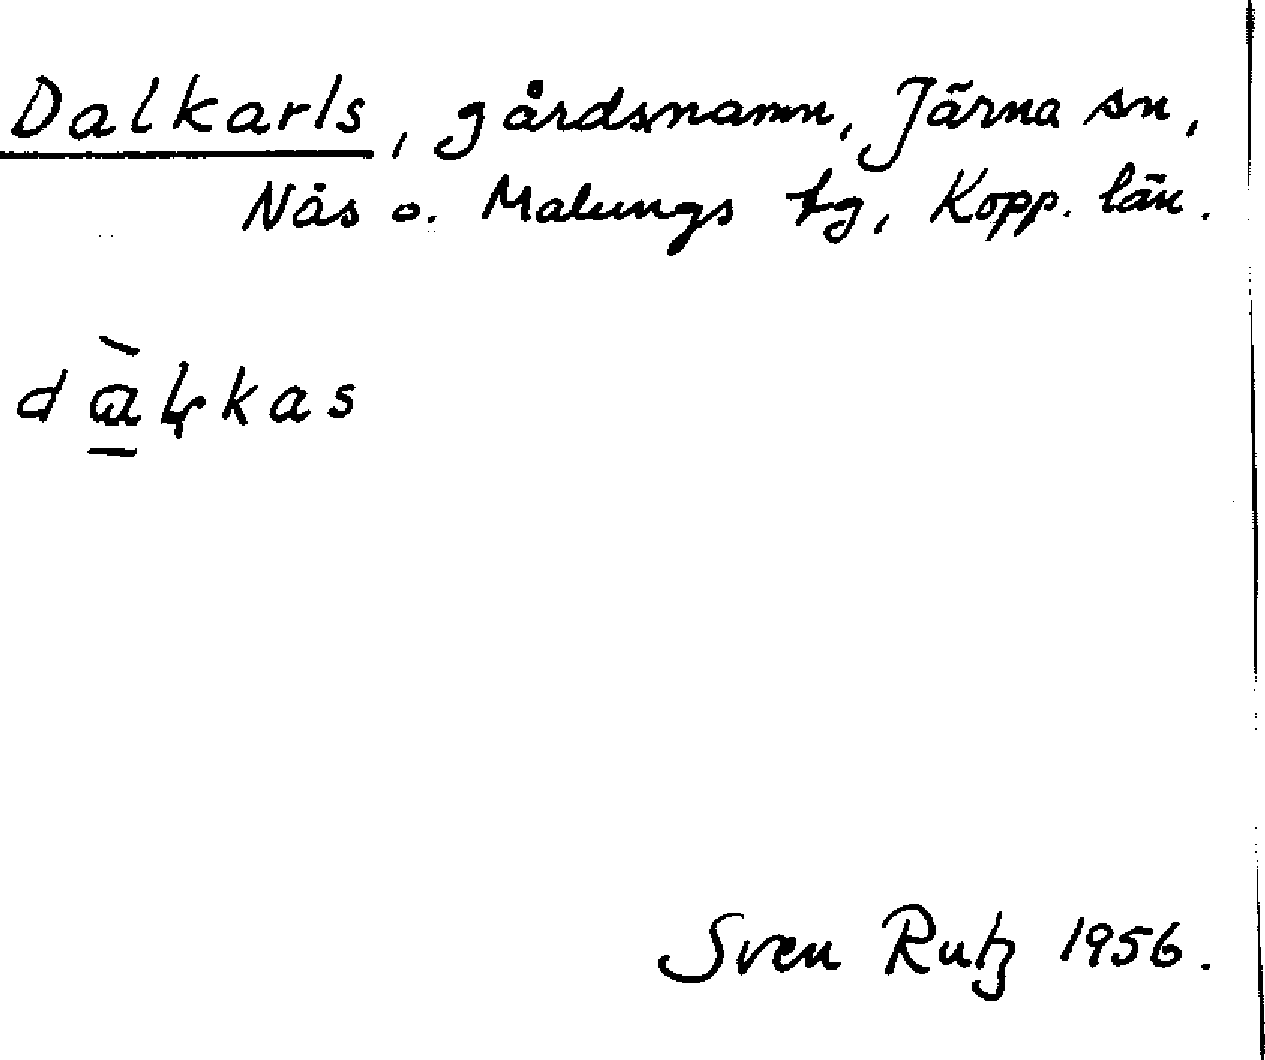 Dalkarls, gårdsnamn, Järna sn,
Nås o. Malungs tg, Kopp. län.
dàḷkas
Sven Rutz 1956.